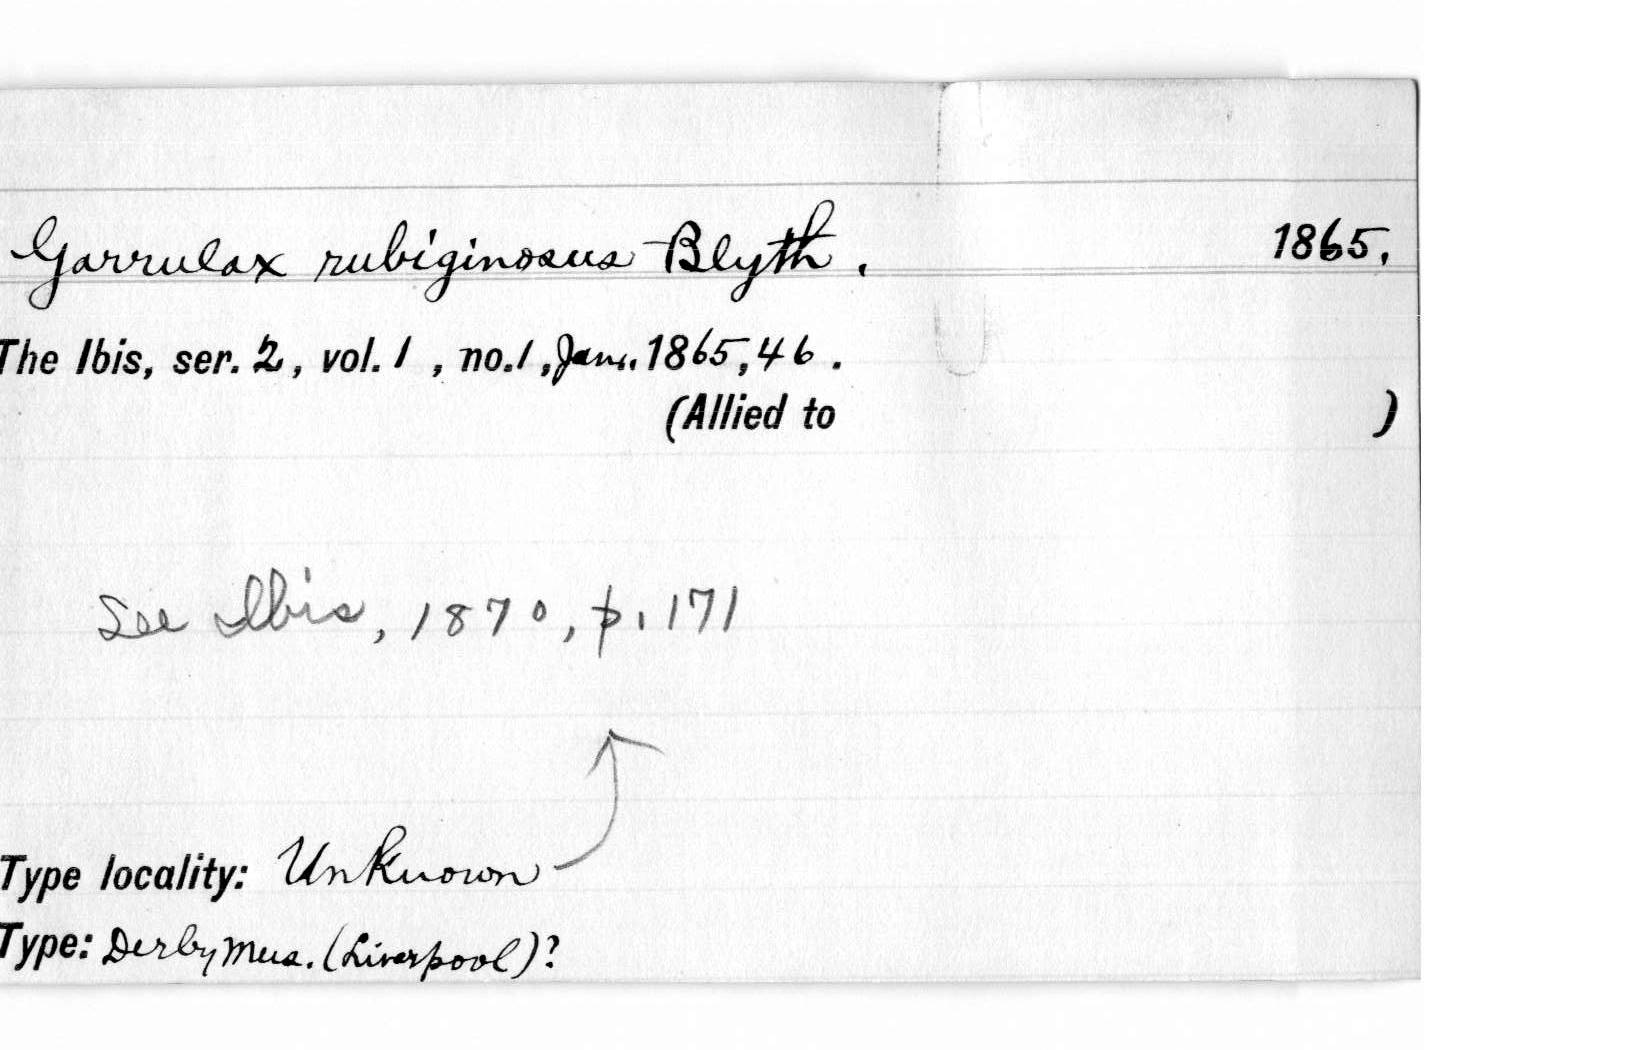 Garrulax rubiginosus Blyth. 1865.
The Ibis, ser. 2, vol. 1, no. 1, Jan., 1865, 46.
(Allied to )
See Ibis, 1870, p. 171
Type locality: Unknown
Type: Derby Mus. (Liverpool)?